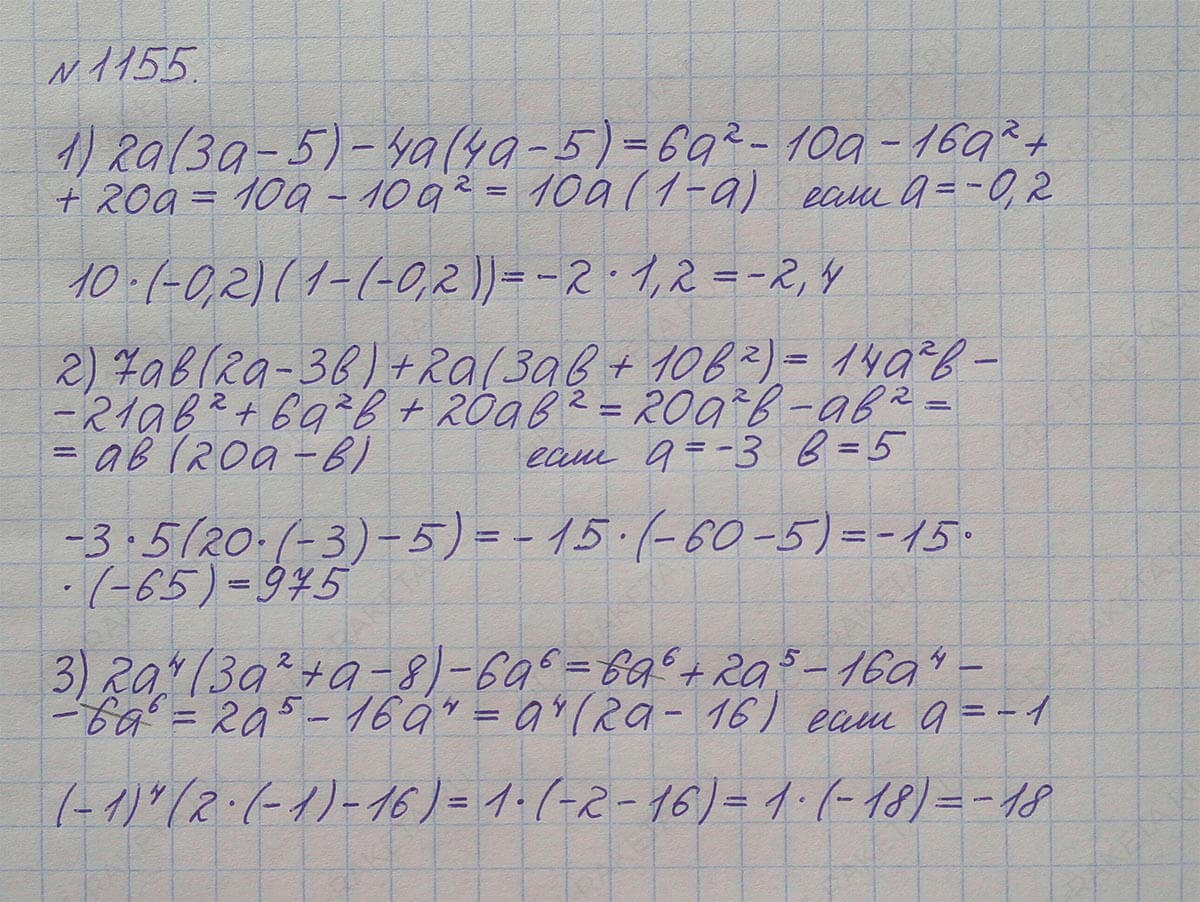 №1155.
1) 2a(3a-5)-4a(4a-5)=6a²-10a-16a²+
+20a=10a-10a²=10a(1-a) если a=-0,2
10·(-0,2)(1-(-0,2))=-2·1,2=-2,4
2) 7ав(2а-3в)+2а(3ав+10в²)=14а²в-
-21ав²+6а²в+20ав²=20а²в-ав²=
=ав(20а-в) если а=-3 в=5
-3·5(20·(-3)-5)=-15·(-60-5)=-15·
·(-65)=975
3) 2a⁴(3a²+a-8)-6a⁶=6a⁶+2a⁵-16a⁴-
-6a⁶=2a⁵-16a⁴=a⁴(2a-16) если a=-1
(-1)⁴(2·(-1)-16)=1·(-2-16)=1·(-18)=-18